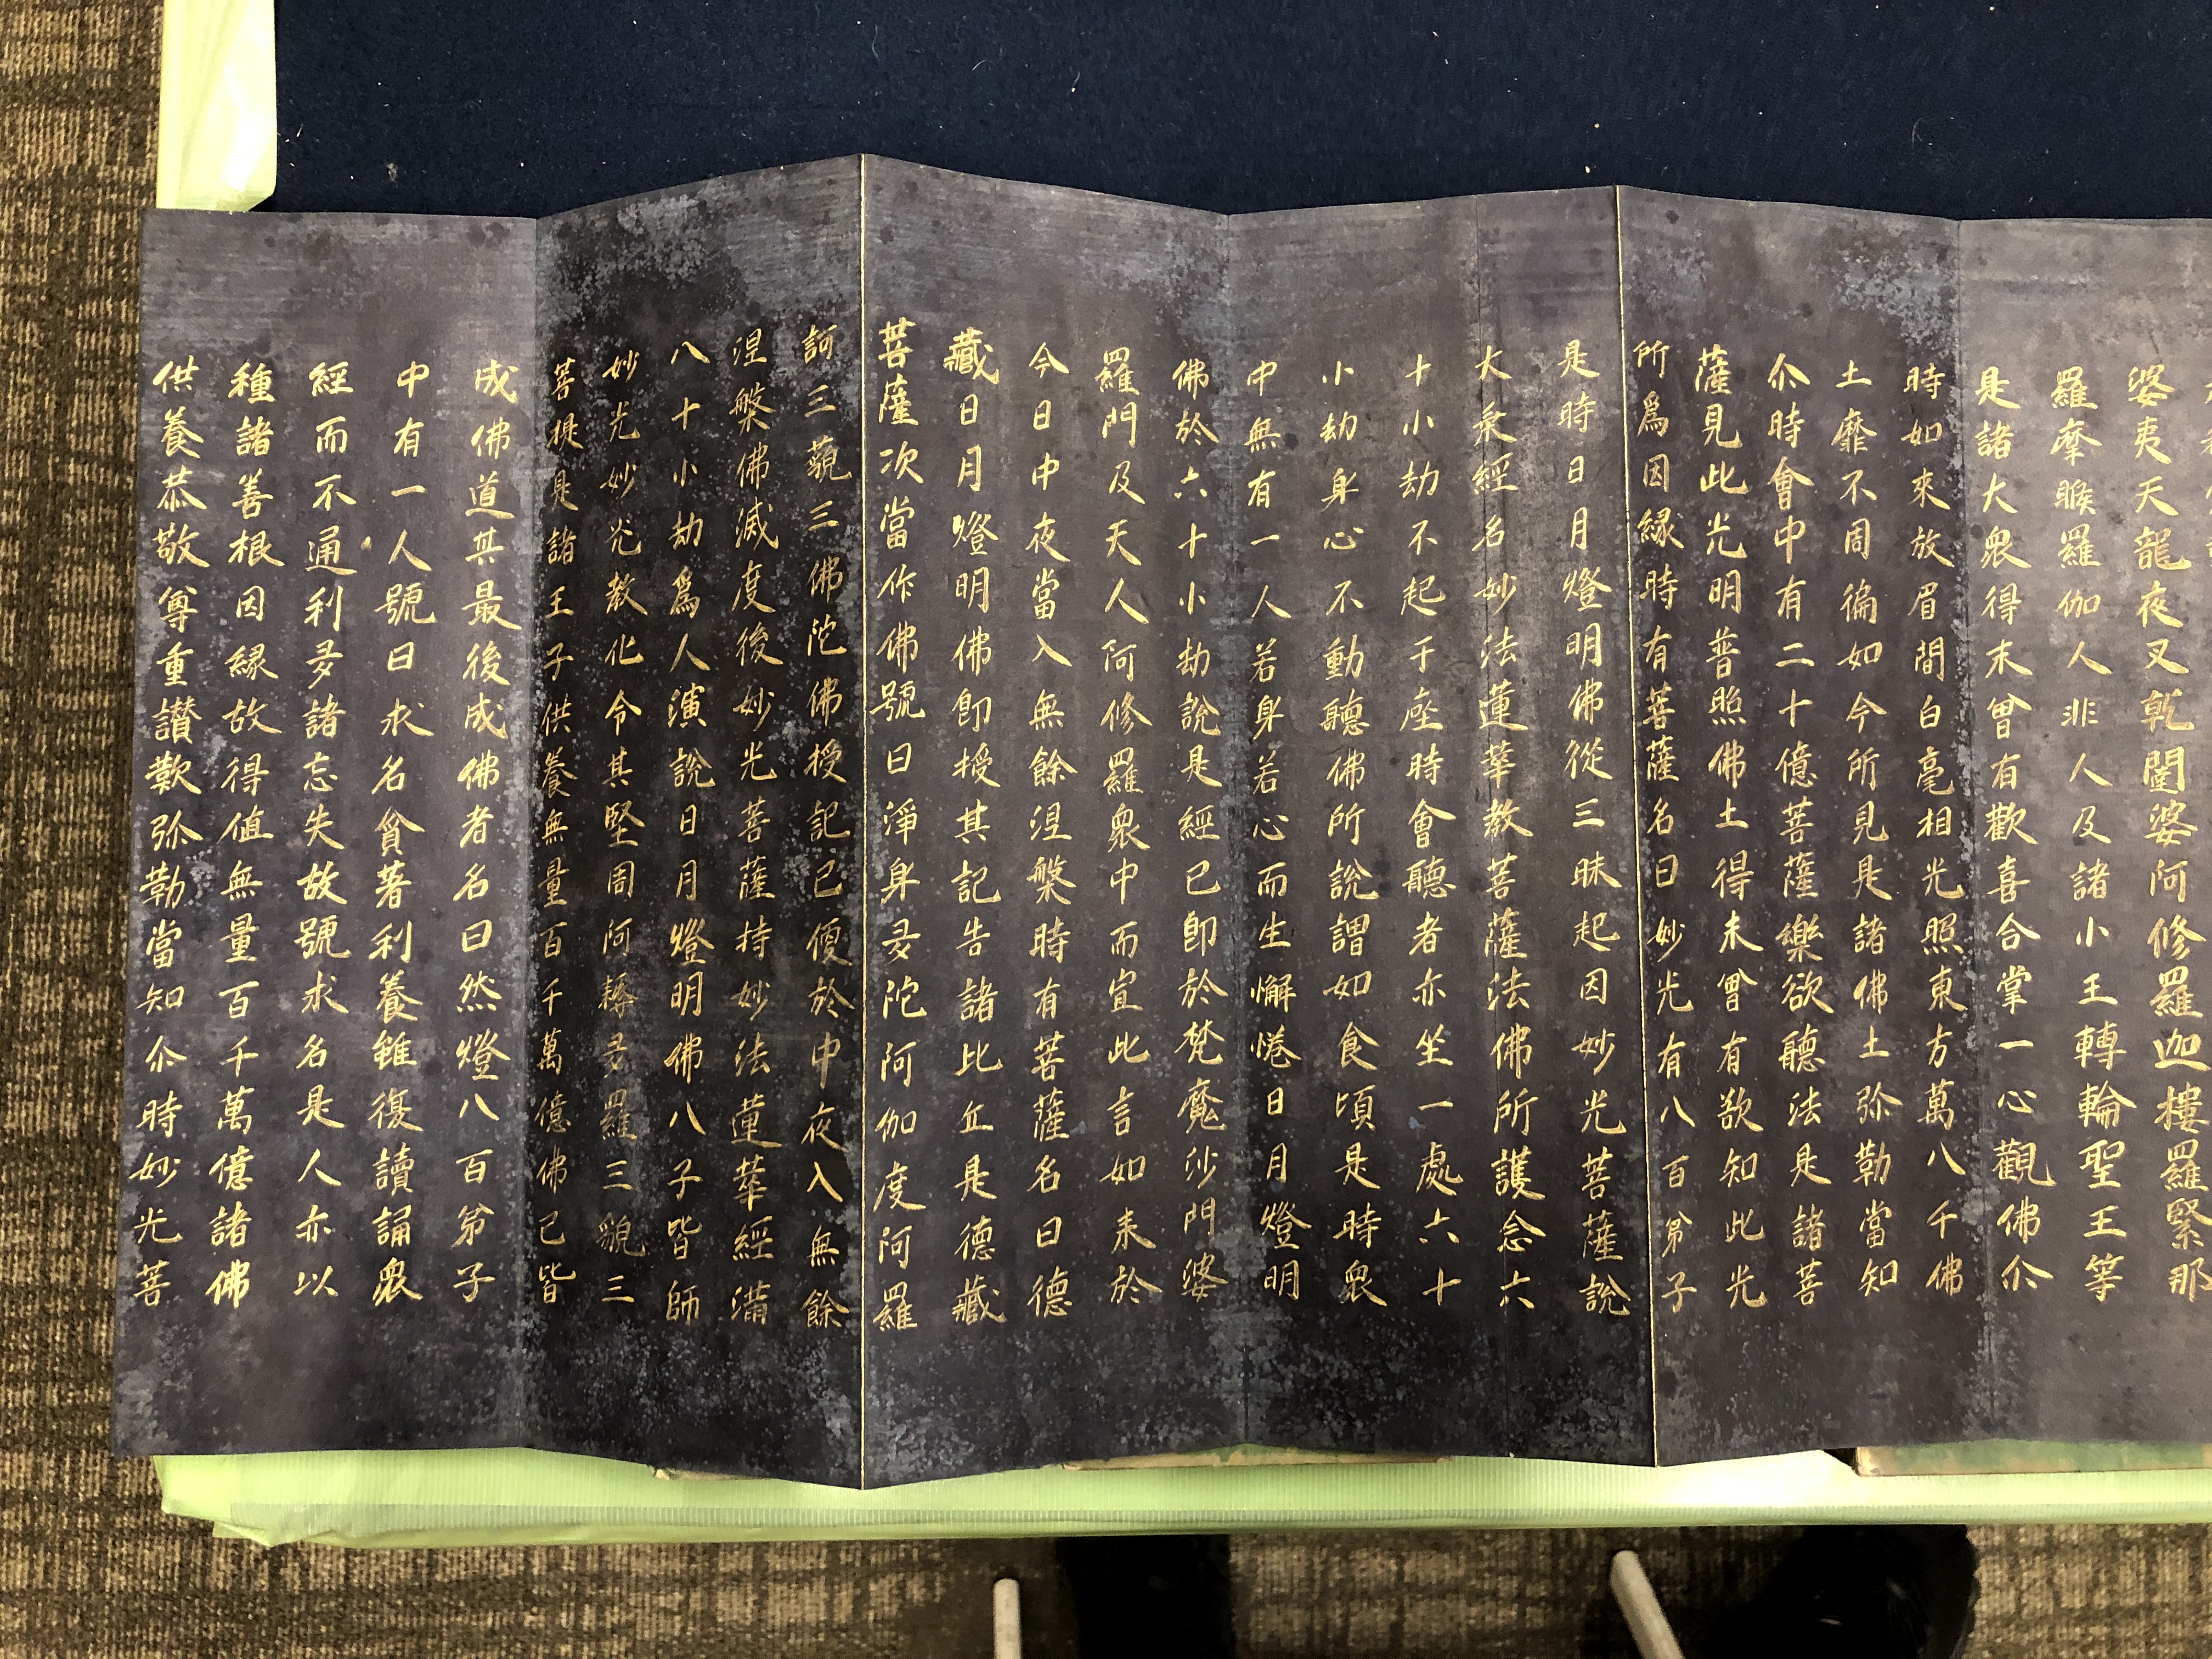 婆夷天龍夜叉乹闥婆阿修羅迦樓羅緊那
羅摩睺羅伽人非人及諸小王轉輪聖王等
是諸大衆得未曾有歡喜合掌一心觀佛尒
時如來放眉間白毫相光照東方萬八千佛
土靡不周徧如今所見是諸佛土弥勒當知
尒時會中有二十億菩薩樂欲聽法是諸菩
薩見此光明普照佛土得未曾有欲知此光
所爲因緣時有菩薩名曰妙光有八百弟子
是時日月燈明佛從三昧起因妙光菩薩說
大乘經名妙法蓮華教菩薩法佛所護念六
十小劫不起于座時會聽者亦坐一處六十
小劫身心不動聽佛所說謂如食頃是時衆
中無有一人若身若心而生懈惓日月燈明
佛於六十小劫說是經已即於梵魔沙門婆
羅門及天人阿修羅衆中而宣此言如來於
今日中夜當入無餘涅槃時有菩薩名曰德
藏日月燈明佛即授其記告諸比丘是德藏
菩薩次當作佛號曰淨身多陀阿伽度阿羅
訶三藐三佛陀佛授記已便於中夜入無餘
涅槃佛滅度後妙光菩薩持妙法蓮華經滿
八十小劫爲人演說日月燈明佛八子皆師
妙光妙光教化令其堅固阿耨多羅三藐三
菩提是諸王子供養無量百千萬億佛已皆
成佛道其最後成佛者名曰然燈八百弟子
中有一人號曰求名貪著利養雖復讀誦衆
經而不通利多諸忘失故號求名是人亦以
種諸善根因緣故得值無量百千萬億諸佛
供養恭敬尊重讃歎弥勒當知尒時妙光菩